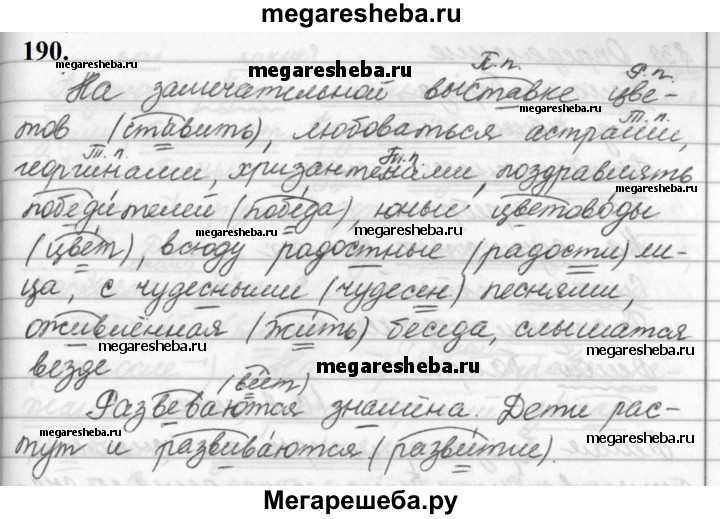 megaresheba.ru
190.
megaresheba.ru
П.п.
Р.п.
На замечательной выставке цве-
megaresheba.ru
тов (ставить), любоваться астрами,
Т.п.
Т.п.
Т.п.
георгинами, хризантемами, поздравлять
megaresheba.ru
победителей (победа), юные цветоводы
megaresheba.ru
megaresheba.ru
(цвет), всюду радостные (радости) ли-
ца, с чудесными (чудесен) песнями,
megaresheba.ru
оживлённая (жить) беседа, слышатся
megaresheba.ru
megaresheba.ru
везде
megaresheba.ru
(веет)
Развеваются знамёна. Дети рас-
megaresheba.ru
тут и развиваются (развитие).
megaresheba.ru
megaresheba.ru
Мегарешеба.ру